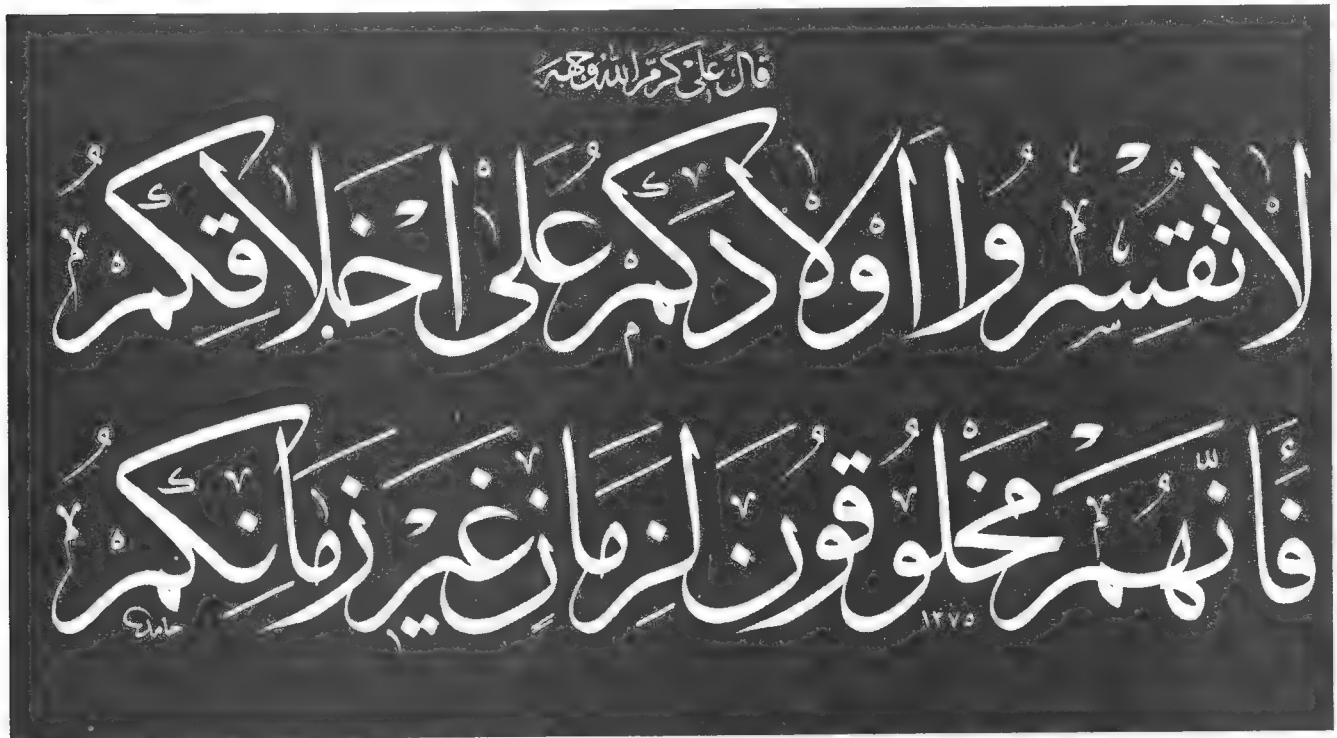 قَالَ عَلِيٌّ كَرَّمَ اللهُ وَجْهَهُ
لَا تَقْسِرُوا أَوْلَادَكُمْ عَلَى أَخْلَاقِكُمْ
فَإِنَّهُمْ مَخْلُوقُونَ لِزَمَانٍ غَيْرِ زَمَانِكُمْ
١٣٧٥
حامد